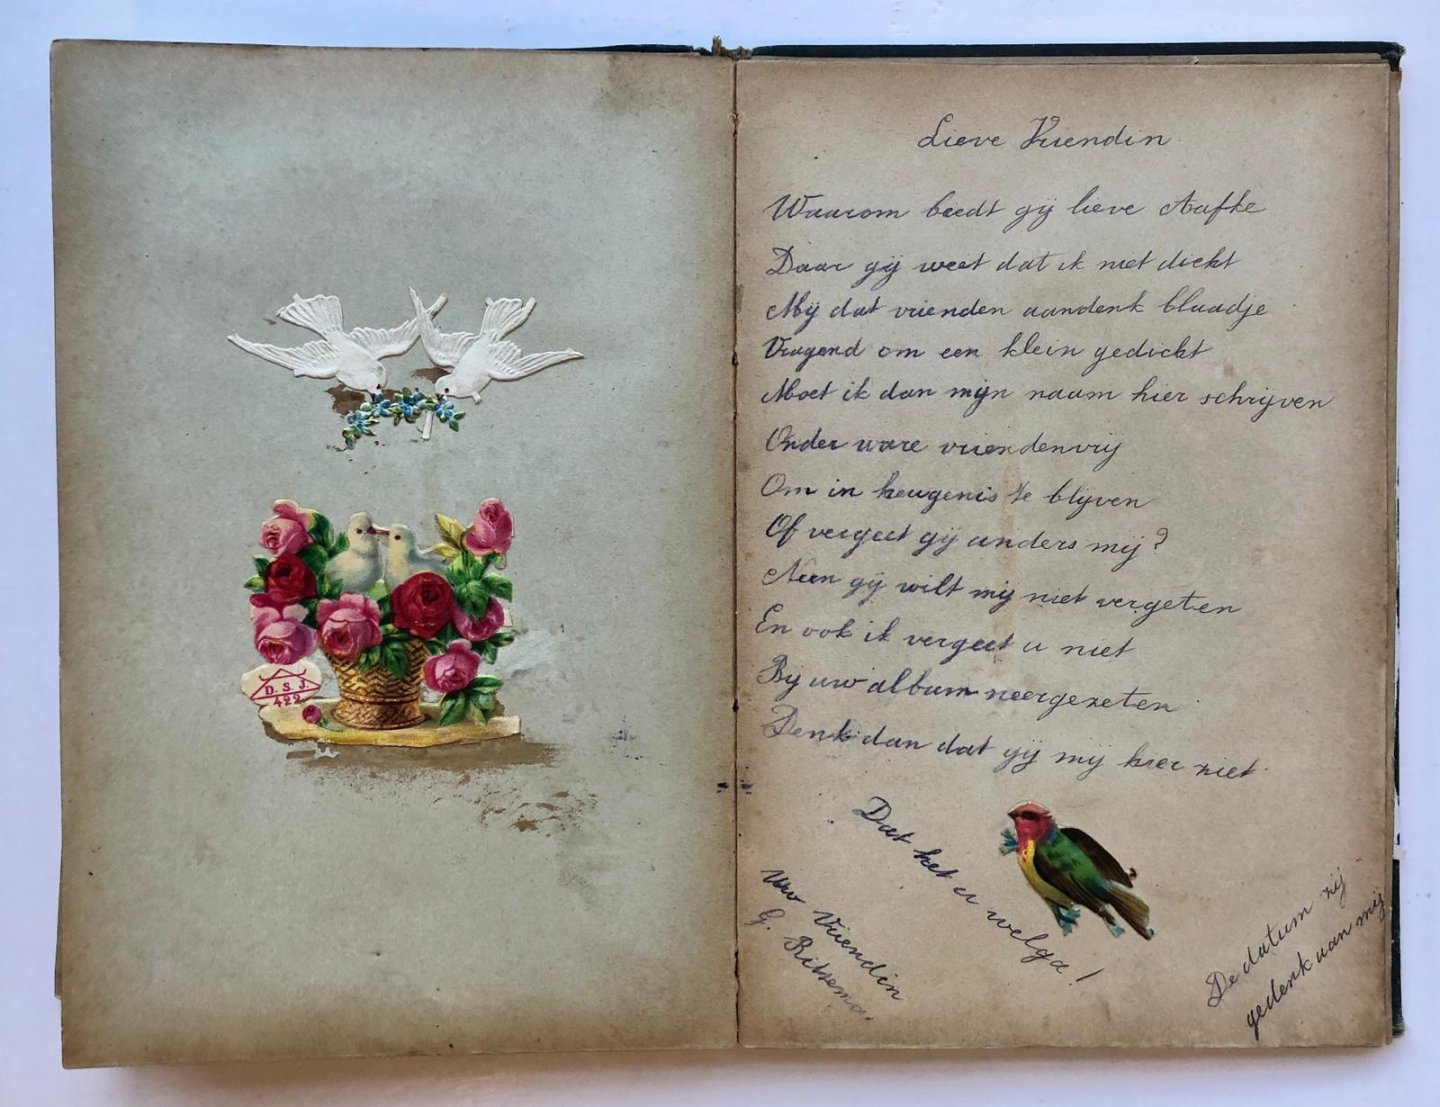 D. S. J.
422
Lieve Vriendin
Waarom biedt gij lieve Aafke
Daar gij weet dat ik niet dicht
Mij dat vrienden aandenk blaadje
Vragend om een klein gedicht
Moet ik dan mijn naam hier schrijven
Onder ware vriendenrij
Om in heugenis te blijven
Of vergeet gij anders mij?
Neen gij wilt mij niet vergeten
En ook ik vergeet u niet
Bij uw album neergezeten
Denk dan dat gij mij hier ziet
Dat het u welga!
Uw Vriendin
G. Ritsema
De datum zij
gedenk aan mij